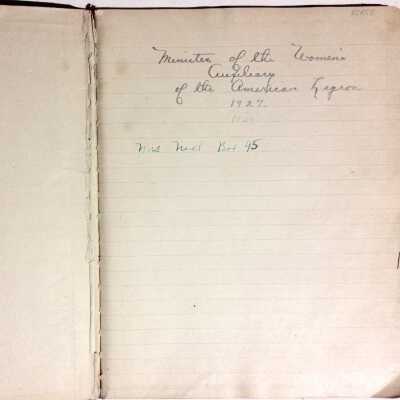 Minutes of the Women's
Auxiliary
of the American Legion
1927.
Box 45